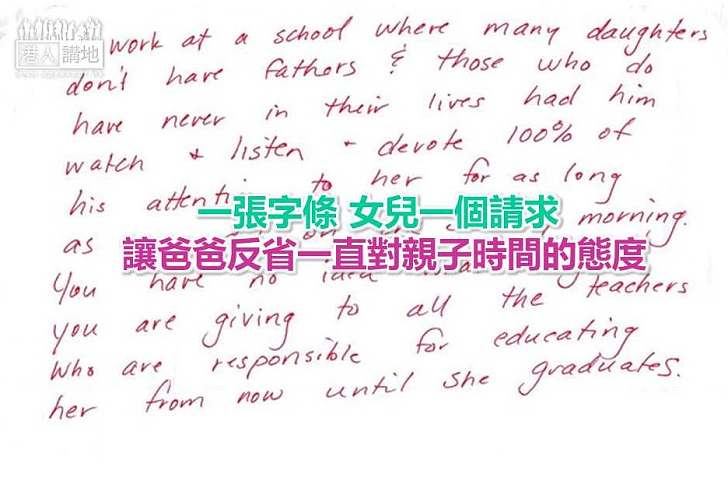 港人講地
work at a school where many daughters
don't have fathers & those who do
have never in their lives had him
watch & listen & devote 100% of
his to her for as long
一張字條 女兒一個請求
as morning.
讓爸爸反省一直對親子時間的態度
You have no idea
you are giving to all the teachers
who are responsible for educating
her from now until she graduates.